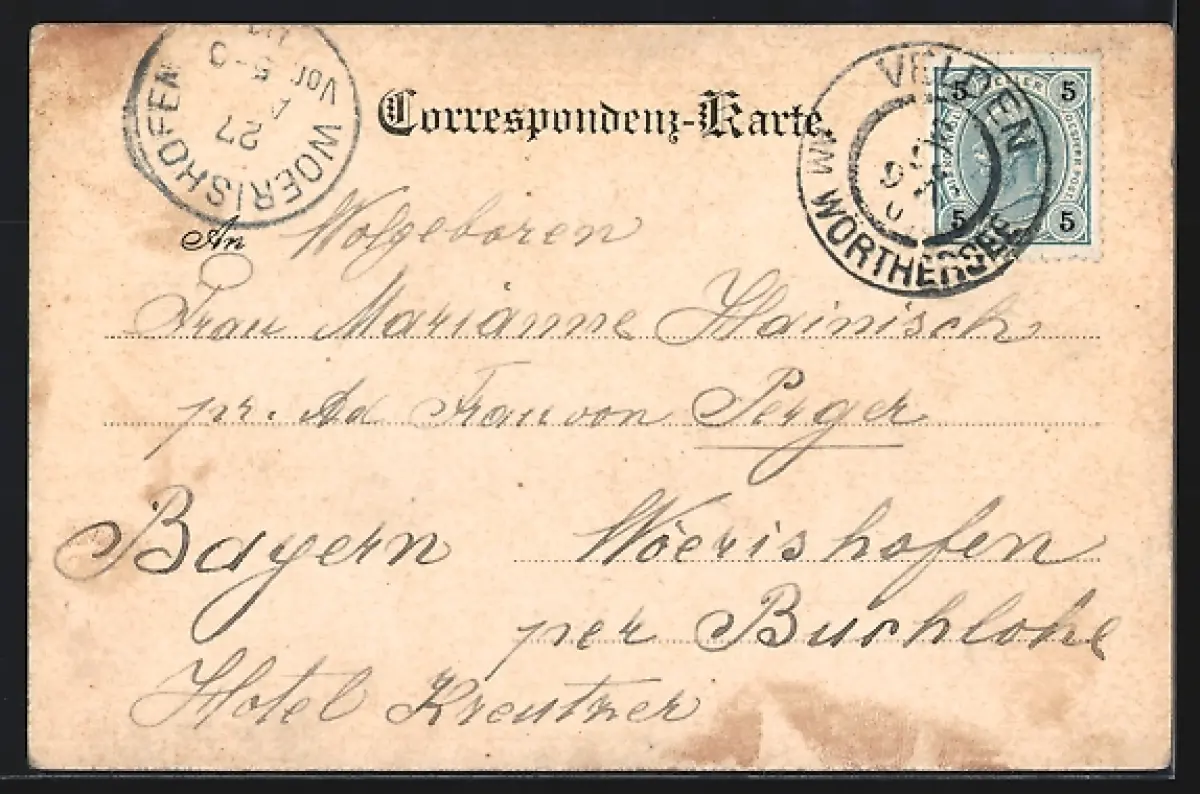 WOERISHOFEN
Vor. 5-0
27
Correspondenz-Karte.
VELDEN
AM WÖRTHERSEE
5 5
5 5
An Wolgeboren
Frau Marianne Hainisch
pr. Ad Frau von Perger
Bayern Wöerishofen
per Buchlohe
Hotel Kreutzer